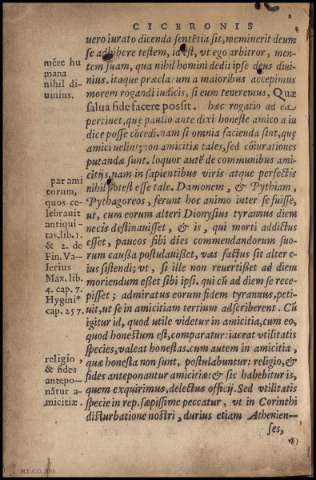 CICERONIS
vero iurato dicenda sentētia sit, meminerit deum
se adhibere testem, id est, vt ego arbitror, men-
tem suam, qua nihil homini dedit ipse deus diui-
nius. itaque præclarum a maioribus accepimus
morem rogandi iudicis, si eum teneremus, Quæ
salua fide facere possit. hæc rogatio ad ea
pertinet, quæ paulo ante dixi honeste amico a iu
dice posse cōcedi. nam si omnia facienda sint, quę
amici velint, non amicitiæ tales, sed cōiurationes
putandæ sunt. loquor autē de communibus ami-
citiis, nam in sapientibus viris atque perfectis
nihil potest esse tale. Damonem, & Pythiam,
Pythagoreos, ferunt hoc animo inter se fuisse,
ut, cum eorum alteri Dionysius tyrannus diem
necis destinauisset, & is, qui morti addictus
esset, paucos sibi dies commendandorum suo-
rum caussa postulauisset, vas factus sit alter e-
ius sistendi; vt, si ille non reuertisset ad diem
moriendum esset sibi ipsi. qui cū ad diem se rece-
pisset; admiratus eorum fidem tyrannus, peti-
uit, ut se in amicitiam tertium adscriberent. Cū
igitur id, quod utile videtur in amicitia, cum eo,
quod honestum est, comparatur: iaceat vtilitatis
species, valeat honestas. cum autem in amicitia,
quæ honesta non sunt, postulabuntur: religio, &
fides anteponantur amicitiæ: & sic habebitur is,
quem exquirimus, delectus officij. Sed vtilitatis
specie in rep. sæpissime peccatur, vt in Corinthi
disturbatione nostri, durius etiam Athenien-
ses,
mēte hu
mana
nihil di-
uinius.
par ami
corum,
quos ce-
lebrauit
antiqui-
tas, lib. 1.
& 2. de
Fin. Va-
lerius
Max. lib.
4. cap. 7.
Hyginº
cap. 257.
religio,
& fides
antepo-
nātur a-
micitiæ.